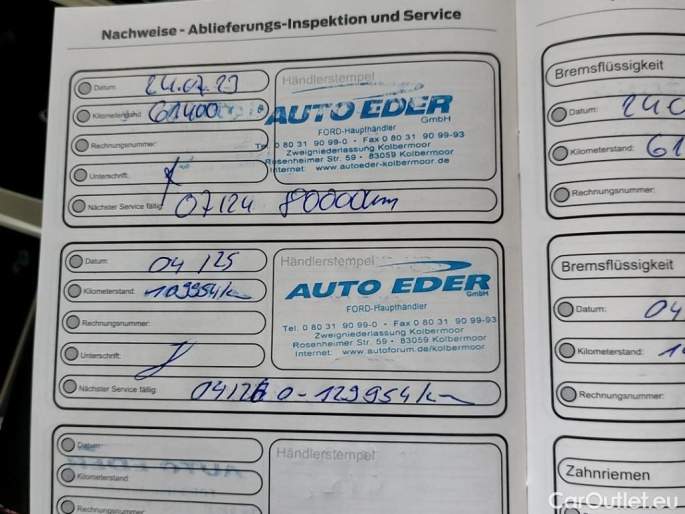 Nachweise - Ablieferungs-Inspektion und Service
Datum: 24.07.23
Kilometerstand: 61400
Rechnungsnummer:
Unterschrift:
Nächster Service fällig: 07/24 80000km
Händlerstempel
AUTO EDER
GmbH
FORD-Haupthändler
Tel. 0 80 31 90 99-0 • Fax 0 80 31 90 99-93
Zweigniederlassung Kolbermoor
Rosenheimer Str. 59 • 83059 Kolbermoor
Internet: www.autoeder-kolbermoor.de
Datum: 04/25
Kilometerstand: 109954/km
Rechnungsnummer:
Unterschrift:
Nächster Service fällig: 04/26 0-129954/km
Händlerstempel
AUTO EDER
GmbH
FORD-Haupthändler
Tel. 0 80 31 90 99-0 • Fax 0 80 31 90 99-93
Zweigniederlassung Kolbermoor
Rosenheimer Str. 59 • 83059 Kolbermoor
Internet: www.autoforum.de/kolbermoor
Datum:
Kilometerstand:
Rechnungsnummer:
Händlerstempel
AUTO EDER
Bremsflüssigkeit
Datum: 240
Kilometerstand: 61
Rechnungsnummer:
Bremsflüssigkeit
Datum: 04
Kilometerstand: 10
Rechnungsnummer:
Zahnriemen
Datum:
CarOutlet.eu